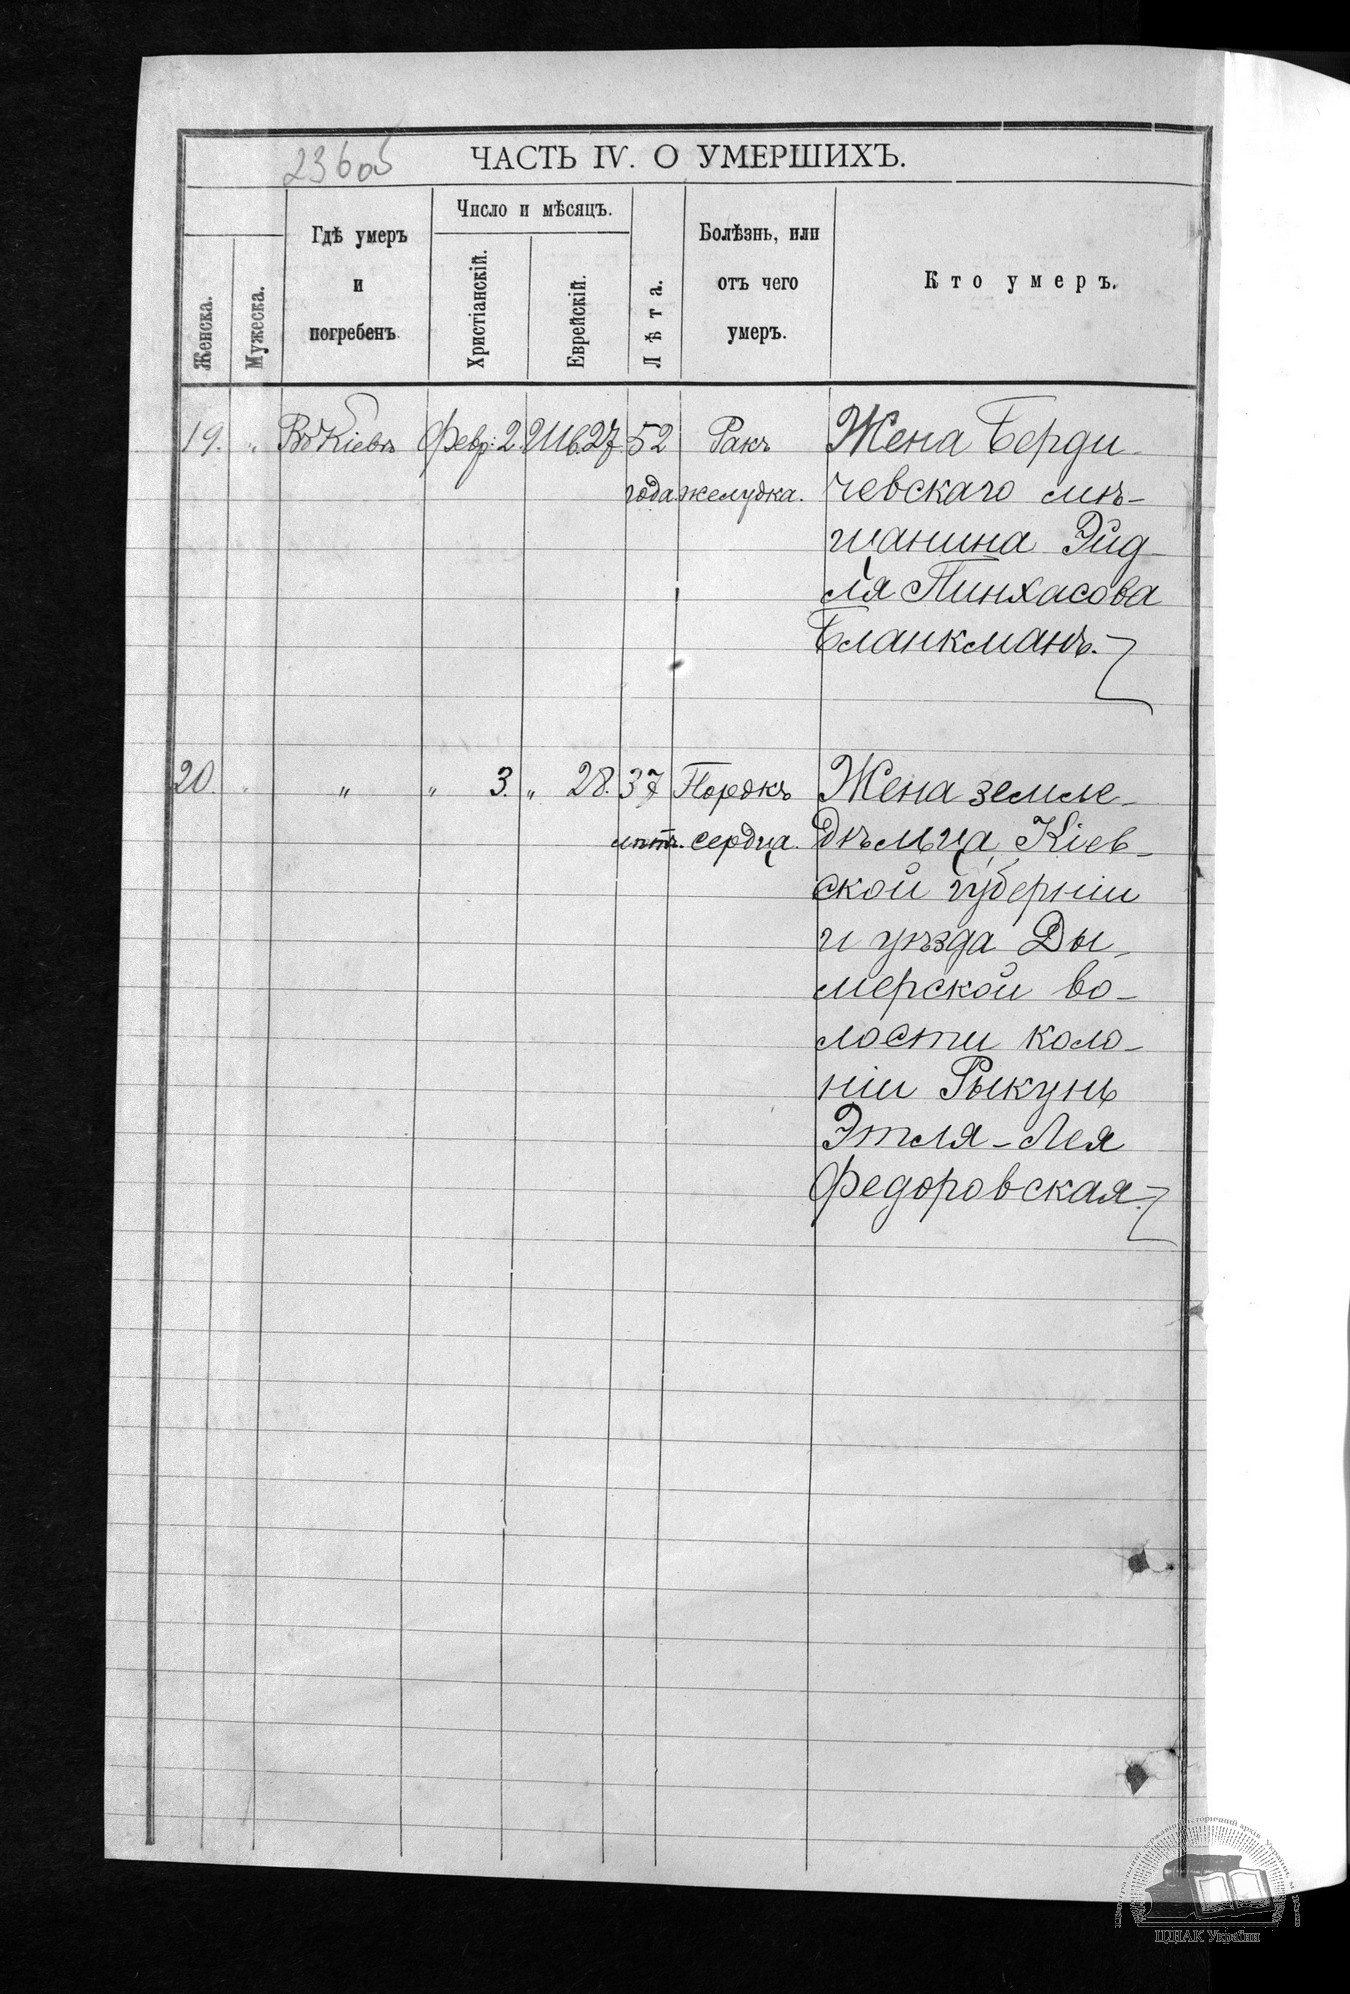 236об
ЧАСТЬ IV. О УМЕРШИХЪ.
Женска.
Мужеска.
Гдѣ умеръ
и
погребенъ
Число и мѣсяцъ.
Христіанскій.
Еврейскій.
Лѣта.
Болѣзнь, или
отъ чего
умеръ.
Кто умеръ.
19. " Въ Кіевѣ Февр. 2. Шв. 27. 52 Ракъ Жена Берди-
года желудка. чевскаго мѣ-
щанина Эйд-
ля Пинхасова
Бланкманъ.
20. " " " 3. " 28. 37 Порокъ Жена земле-
лѣтъ. сердца. дѣльца Кіев-
ской губерніи
и уѣзда Ды-
мерской во-
лости коло-
ніи Рыкунь
Этля-Лея
Федоровская.
ЦДІАК України